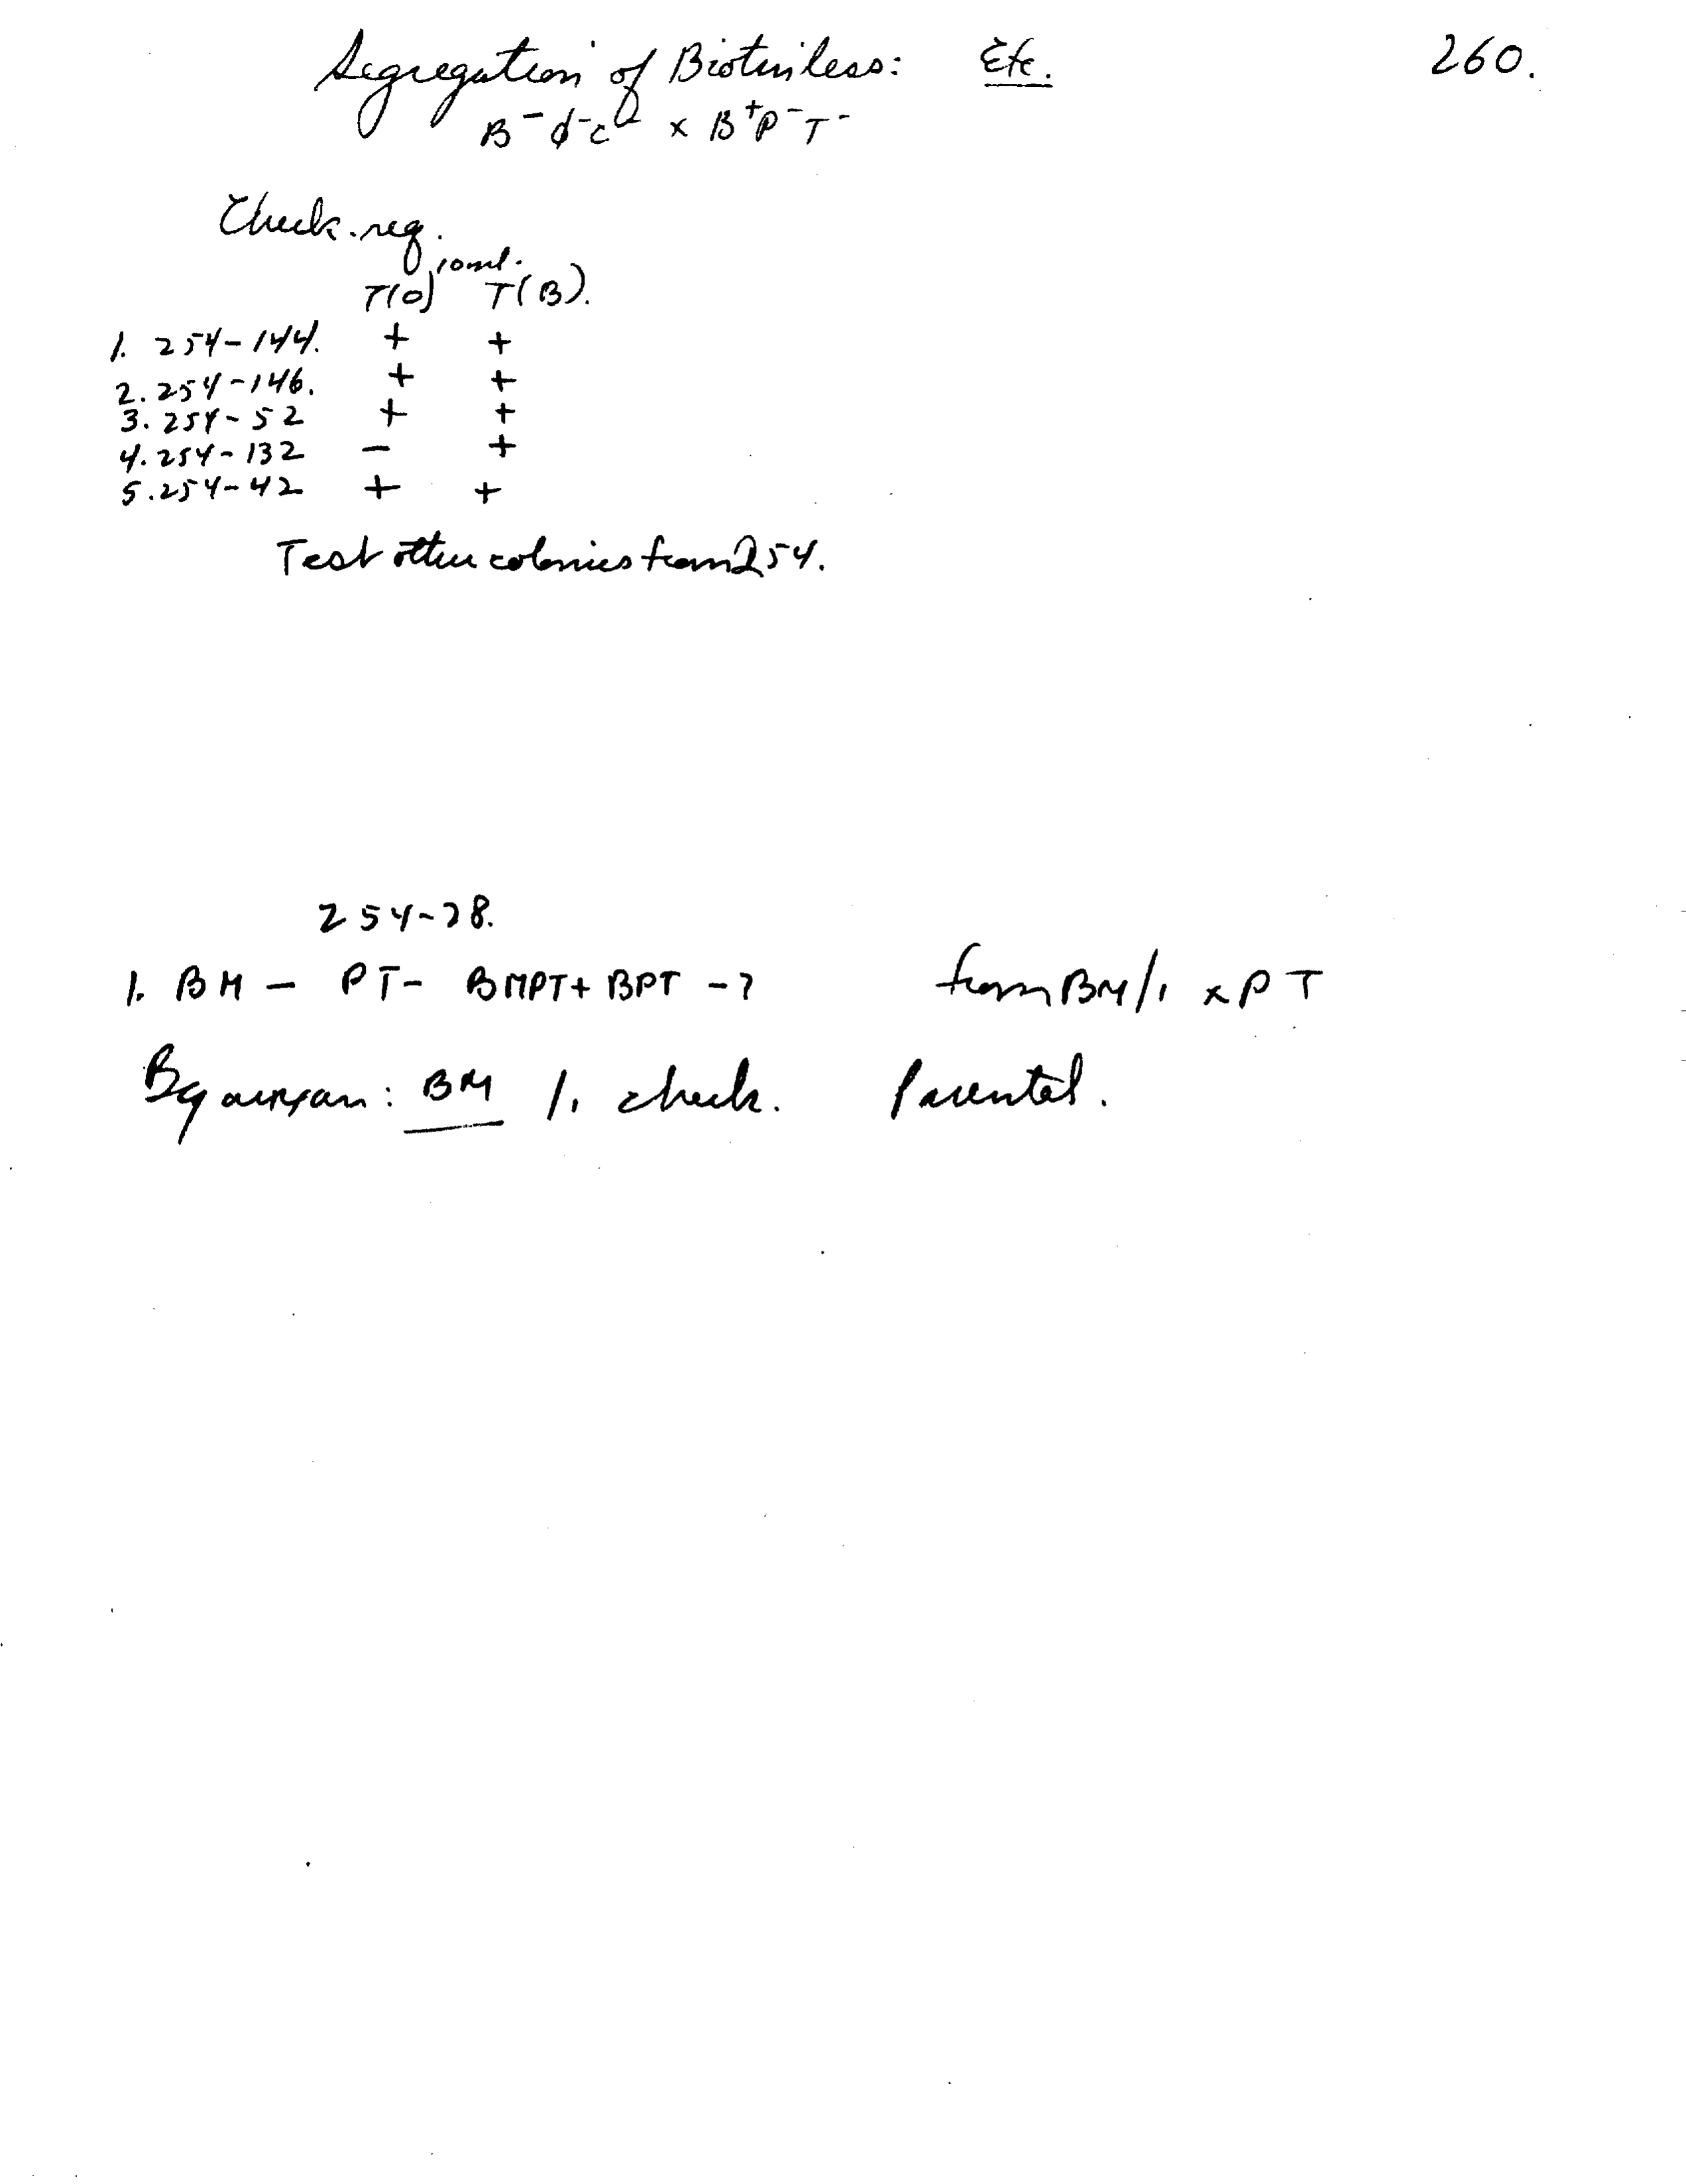 Segregation of Biotinless: Etc. 260.
B⁻ φ⁻ C⁻ x B⁺P⁻T⁻
Check. req.
10ml.
T(0) T(B).
1. 254-144. + +
2. 254-146. + +
3. 254-52 + +
4. 254-132 - +
5. 254-42 + +
Test other colonies from 254.
254-28.
1. BM - PT- BMPT+ BPT -? from BM/1 x PT
By : BM /1 check. Parental.